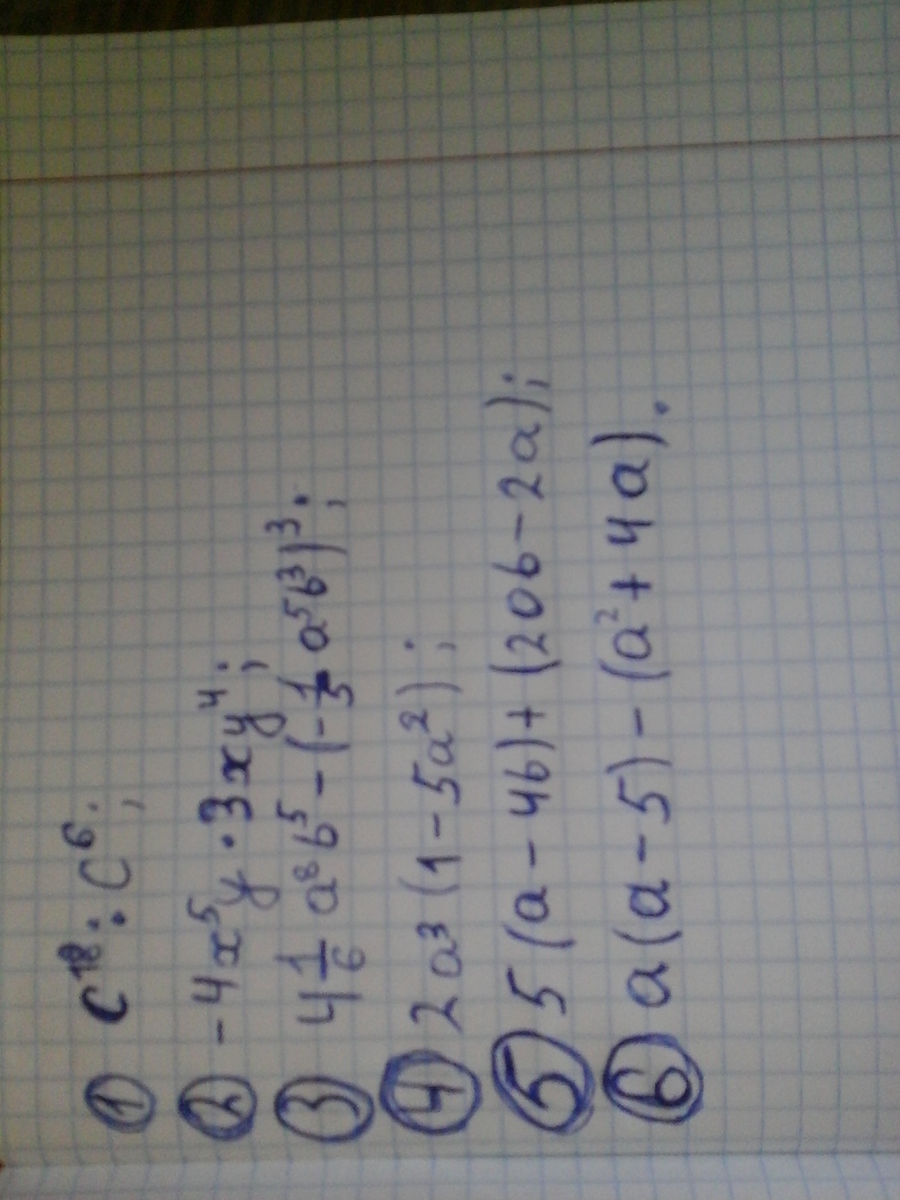 ① c¹⁸ : c⁶;
② -4x⁵y · 3xy⁴;
③ 4 1/6 a⁸b⁵ - (-1/5 a⁵b³)³;
④ 2a³(1-5a²);
⑤ 5(a-4b)+(20b-2a);
⑥ a(a-5)-(a²+4a).